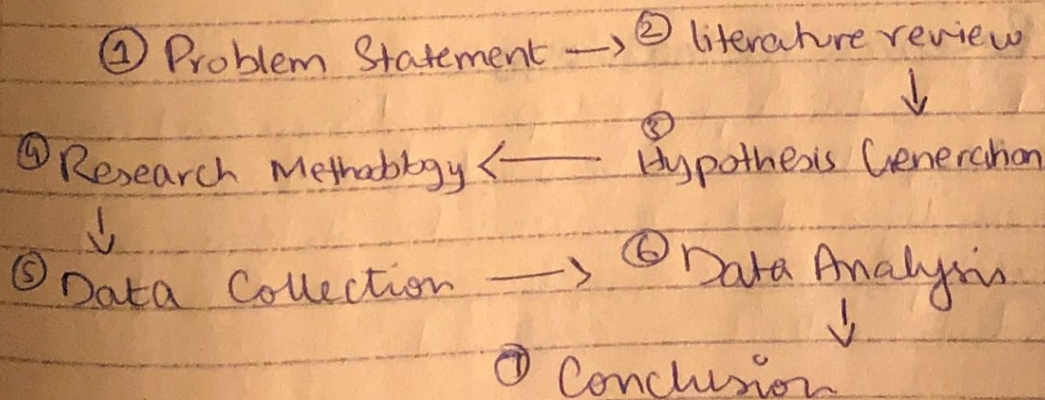 ① Problem Statement → ② literature review
↓
④ Research Methodology ← ③ Hypothesis Generation
↓
⑤ Data Collection → ⑥ Data Analysis
↓
⑦ Conclusion